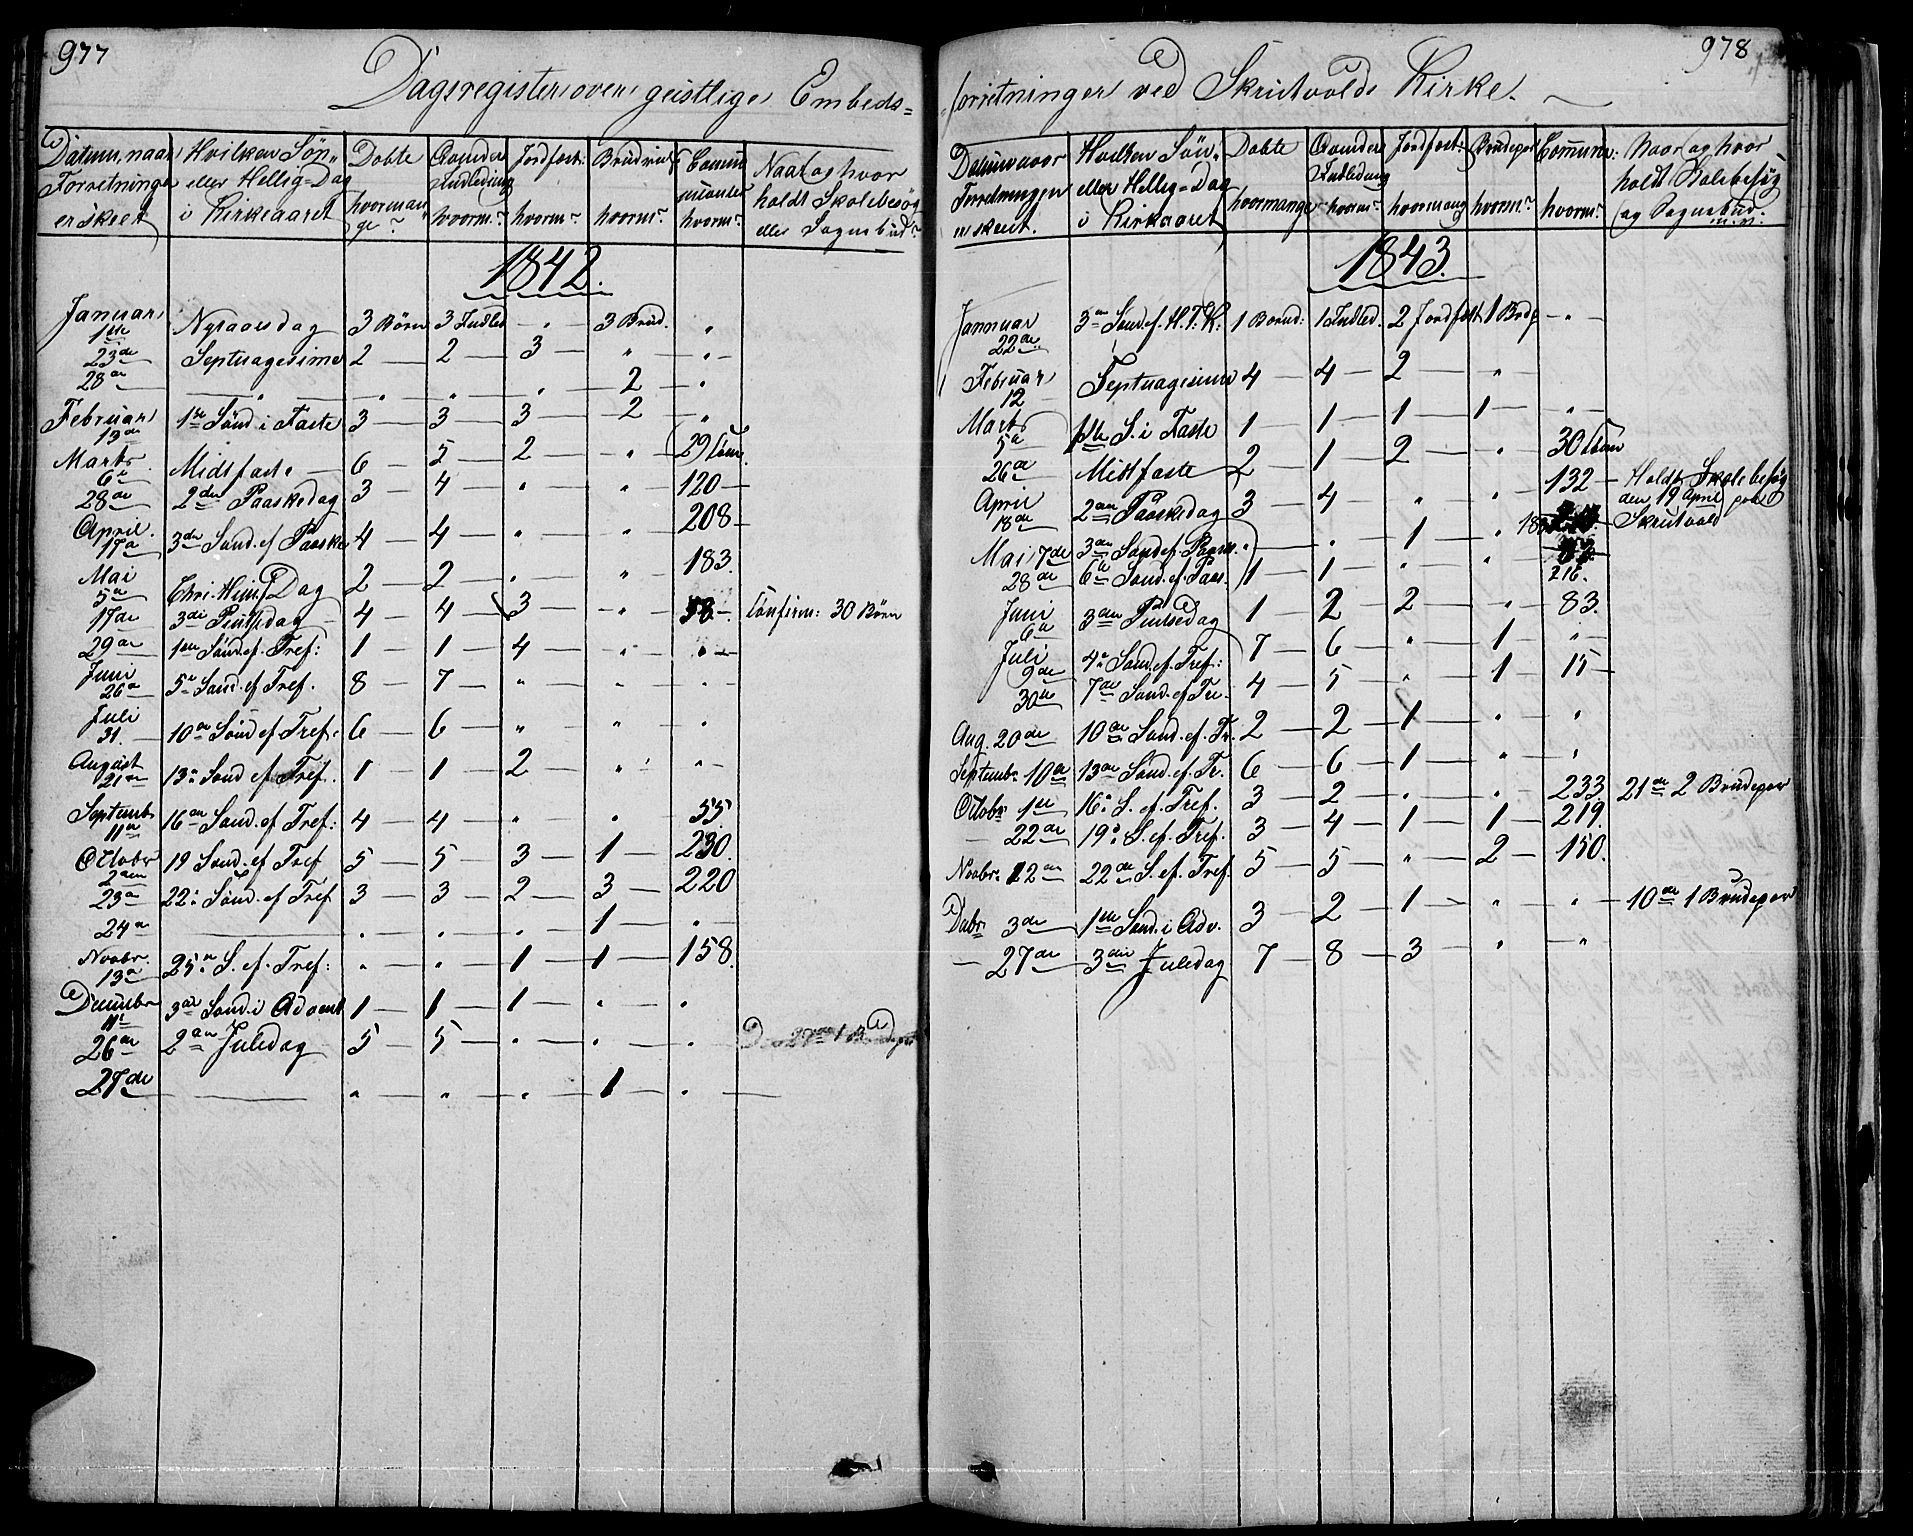 977
Dagsregister over geistlige Embeds=
Datum, naar Forretninge er skeet
Hvilken Søn- eller Hellig=Dag i Kirkeaaret
Døbte hvorman ge?
Qvinder Indleding hvorm?
Jordfæst: hvorm?
Brudevies hvorm?
Commu nicanter hvorm?
Naar og hvor holdt Skolebesøg eller Sognebud?
1842.
Januar 1ste Nyaarsdag 3 Børn 3 Indled „ 3 Brud. „
23de Septuagesima 2 — 2 — 3 — „ — „
28de — „ — „ „ „ 2 — „
Februar 13de 1ste Sønd i Faste 3 — 3 — 3 — 2 — „
Marts 6te Midtfaste — 6 — 5 — 2 — „ 29 Com.
28de 2den Paaskedag 3 — 4 — „ „ 120 —
April. 17de 3de Sønd. ef Paaske 4 — 4 — „ „ 208 —
Mai 5te Chri. Him. Dag 2 — 2 — „ „ 183.
17de 3die Pintsdag 4 — 4 — 3 — „ 58 —. Confirm: 30 Børn
29de 1ste Sønd. ef. Tref: 1 — 1 — 4 — „ „
Juni 26de 5te Sønd. ef Tref. 8 — 7 — „ „ „
Juli 31. 10de Sønd ef Tref. 6 — 6 — „ „ „
August 21de 13de Sønd ef Tref. 1 — 1 — 2 „ „
Septemb 11te 16de Sønd. ef Tref: 4 — 4 — „ „ 55.
Octobr 2den 19 Sønd. ef Tref 5 — 5 3 — 1 — 230.
23de 22de Sønd. ef Tref 3 — 3 — 2 — 3 — 220
24de — „ „ „ 1 — „
Novbr. 13de 25de S. ef. Tref: „ „ 1 — 1 — 158.
Decembr 11te 3de Sønd. i Advent 1 — 1 — 1 — „ „
26de 2den Juledag 5 — 5 — „ „ „
27de — „ „ „ 1 — „ —
978
forretninger ved Skrutvold Kirke.
Datum naar Forretningen er skeet.
Hvilken Søn- eller Hellig=Dag i Kirkeaaret
Døbte hvormange
Qvinder Indledning hvorm?
Jordfæst: hvormang
Brudepar hvorm?
Commun: hvorm?
Naar og hvor holdt Skolebesøg og Sognebud.
1843.
Januar 22de 3de Sønd. ef. H.T.K. 1 Barn 1 Indled. 2 Jordfæst 1 Brdp — „ —
Februar 12 Septuagesima 4 — 4 — 2 — „
Marts 5te 1ste S. i Faste 1 — 1 — 1 — 1 — „
26de Midtfaste 2 — 1 — 2 — „ 30 Com
April 18de 2den Paaskedag 3 — 4 — „ „ 132 — Holdt Skolebesøg den 19 April paa Skrutvold
Mai 7de 3de Sønd ef. Paask. „ — „ 1 — „
28de 6te Sønd. ef. Paas. 1 — 1 — „ „ 216.
Juni 6te 3den Pintsedag 1 — 2 — 2 — „ 83.
Juli 9de 4de Sønd. ef. Tref: 7 — 6 — „ 1 — „
30te 7de Sønd. ef Tre. 4 — 5 — „ 1 — 15 —
Aug. 20de 10de Sønd. ef. Tr. 2 — 2 — 1 — „ „
Septembr 10de 13de Sønd. ef. Tr. 6 — 6 — 1 — „ „
Octobr 1ste 16de S. ef. Tref. 3 — 2 — „ „ 233. 21de 2 Brudepar
— 22de 19de S. ef Tref. 3 — 4 — 1 — 1 — 219.
Novbr. 12te 22de S. ef. Tref. 5 — 5 — „ 2 — 150.
Decbr 3de 1ste Sønd. i Adv. 3 — 2 — 1 — „ „ 10de 1 Brudepar
— 27de 3die Juledag 7 — 8 — 3 — „ „